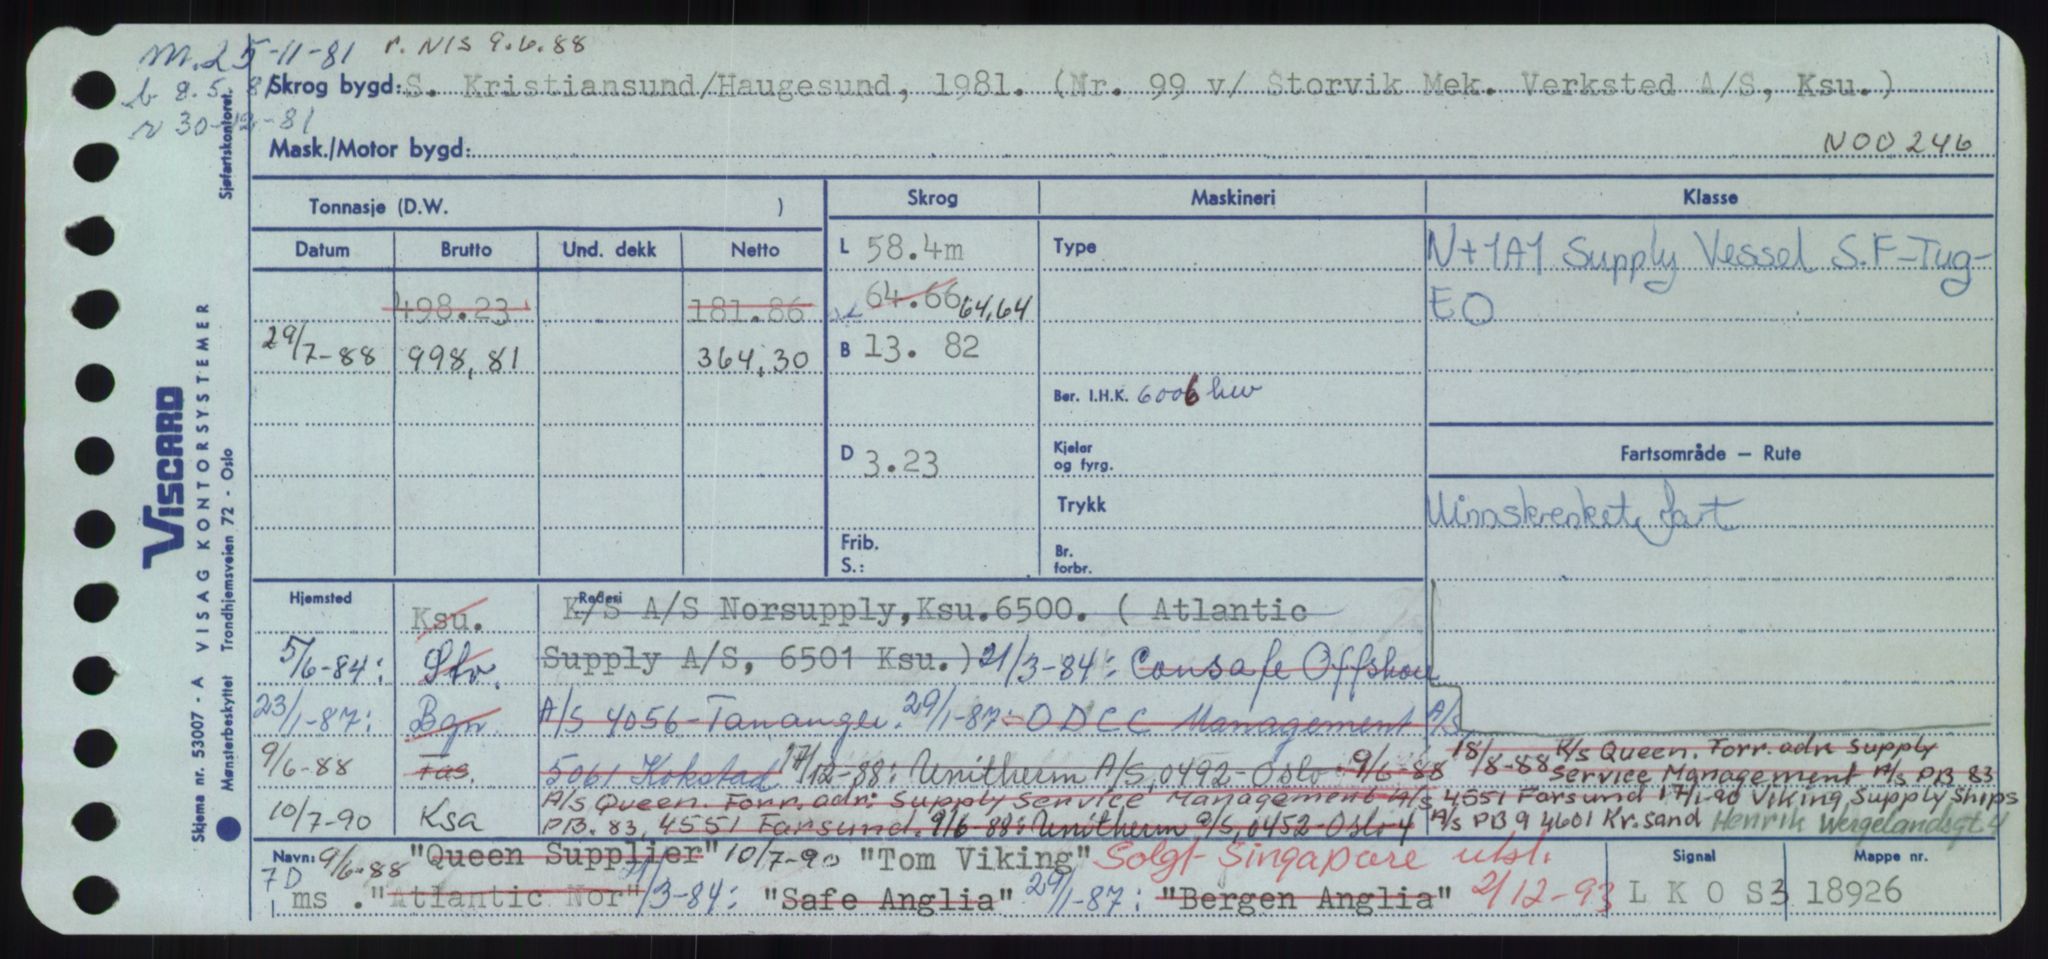 m. 25-11-81 r. NIS 9.6.88
b 8.5.81 Skrog bygd: S. Kristiansund/Haugesund, 1981. (Nr. 99 v/ Storvik Mek. Verksted A/S, Ksu.)
r 30-12-81
Mask./Motor bygd: N00246
Sjøfartskontoret.
Tonnasje (D.W. ) Skrog Maskineri Klasse
Datum Brutto Und. dekk Netto L 58.4m Type N+1A1 Supply Vessel S.F-Tug-
498.23 181.86 64.66 64,64 EO
29/7-88 998,81 364,30 B 13. 82
Ber. I.H.K. 6006 hw
D 3.23 Kjeler og fyrg. Fartsområde — Rute
Trykk Uinnskrenket fart
Frib. S.: Br. forbr.
Hjemsted Rederi
Ksu. K/S A/S Norsupply, Ksu. 6500. ( Atlantic
5/6-84: Stv. Supply A/S, 6501 Ksu.) 21/3-84: Consafe Offshore
23/1-87: Bgn. A/S 4056-Tananger. 29/1-87: ODCC Management A/S
9/6-88 Fas. 5061 Kokstad 17/12-88: Unitherm A/S, 0492-Oslo 9/6-88 18/8-88 K/s Queen. Forr. adr. Supply
Service Management A/S PB 83
10/7-90 Ksa A/s Queen. Forr. adr: Supply Service Management A/S 4551 Farsund 17/1-90 Viking Supply Ships
PB. 83, 4551 Farsund. 9/6-88: Unitherm A/S, 0452-Oslo 4 A/s PB 9 4601 Kr.sand Henrik Wergelandsgt 4
Navn: 9/6-88 "Queen Supplier" 10/7-90 "Tom Viking" Solgt Singapore utsl. Signal Mappe nr.
7D
ms . "Atlantic Nor" /3-84: "Safe Anglia" 29/1-87: "Bergen Anglia" 2/12-93 L K O S 3 18926
VISCARD
VISAG KONTORSYSTEMER
Skjema nr. 53007 - A
Mønsterbeskyttet Trondhjemsveien 72 - Oslo